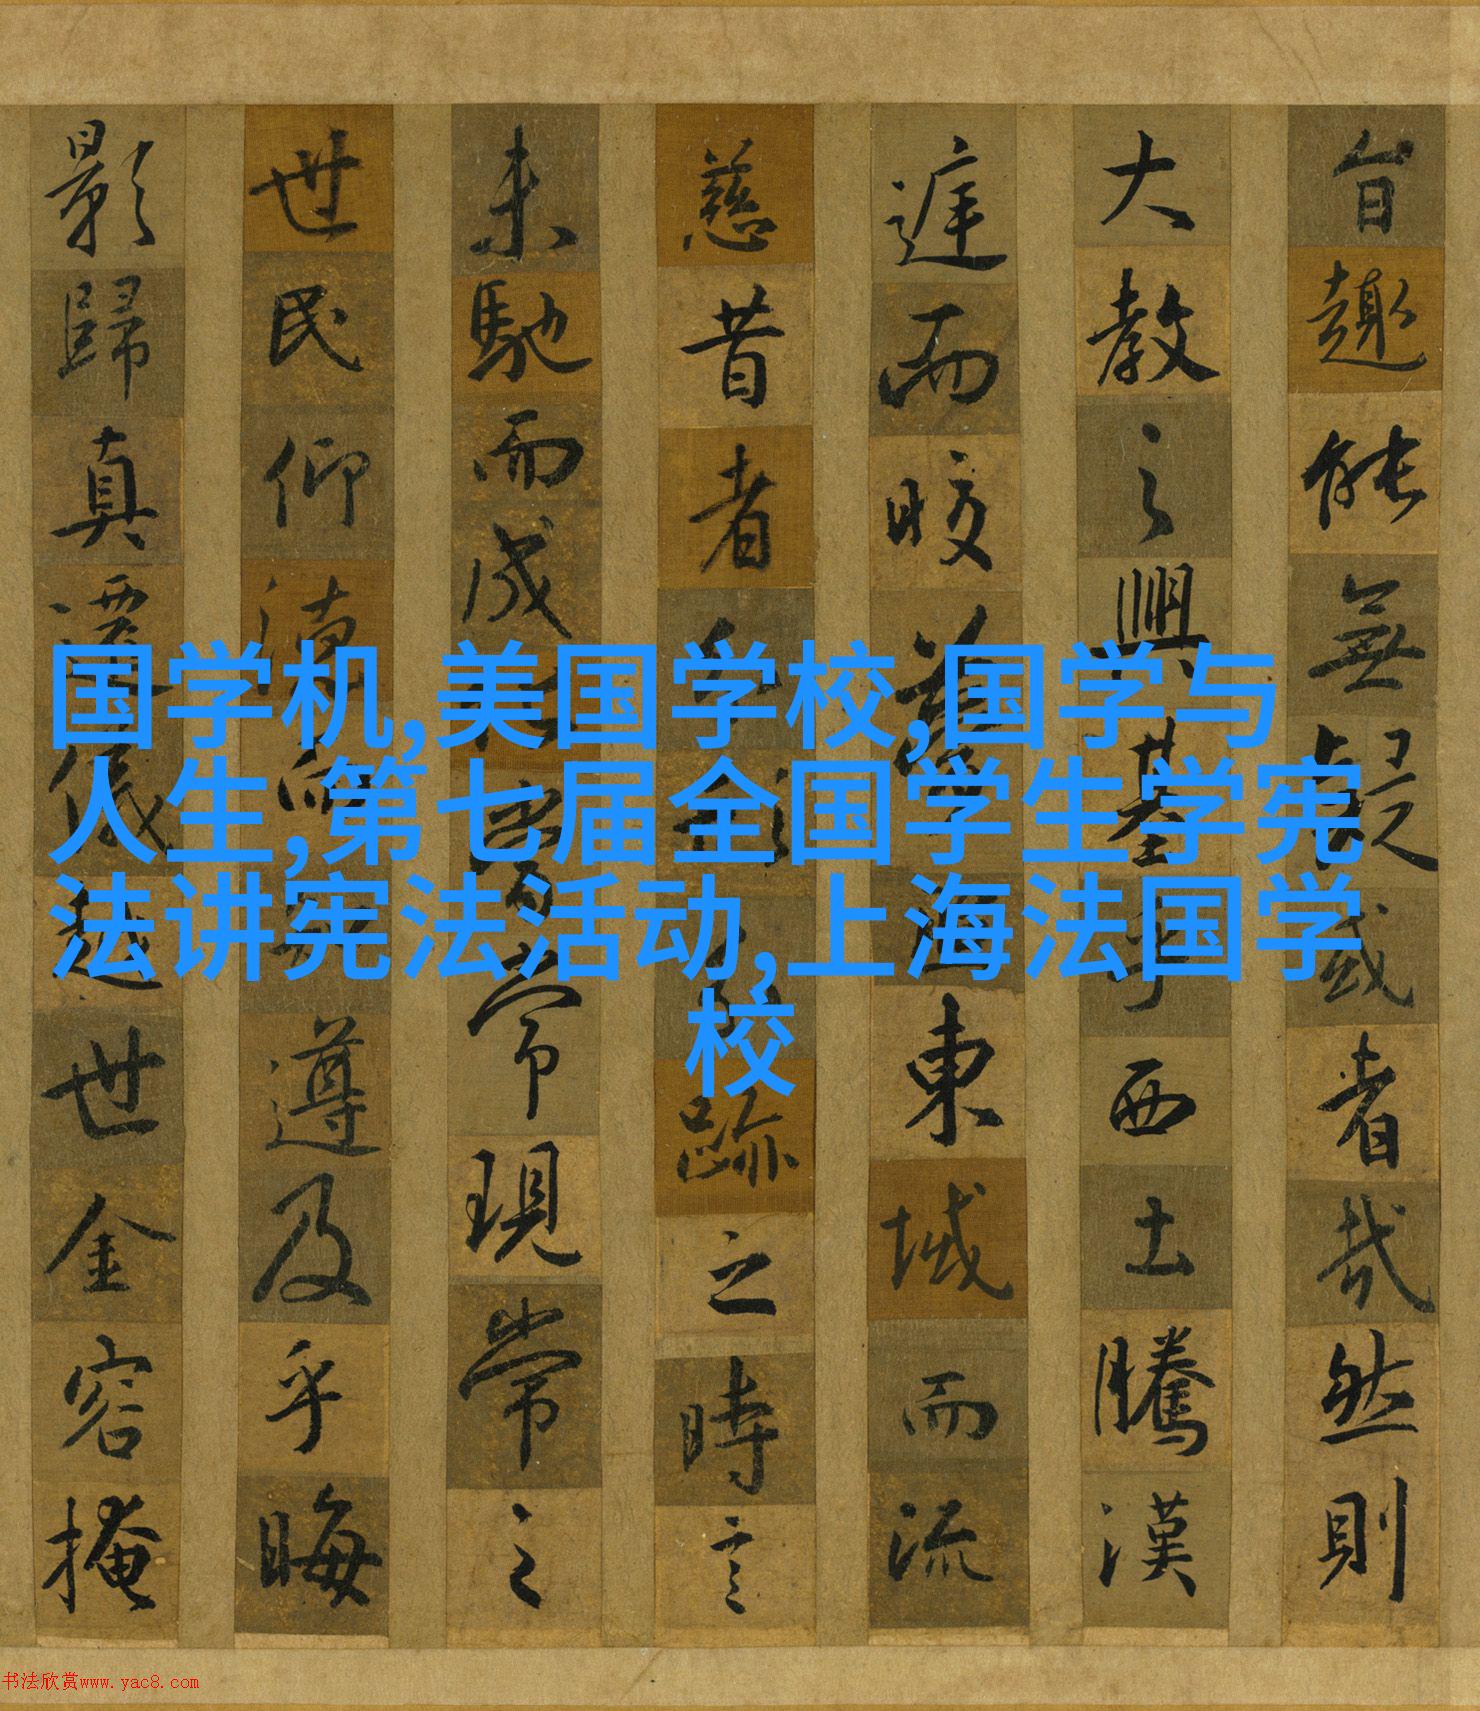 国学机,美国学校,国学与
人生,第七届全国学生学宪
法讲宪法活动,上海法国学
校
旨趣能無疑或者哉然則
大教之興基乎西土騰漢
庭而皎夢照東域而流
慈昔者分形分跡之時言
未馳而成化當常現常之
世民仰德而知遵及乎晦
影歸真遷儀越世金容掩
书法欣赏www.yac8.com